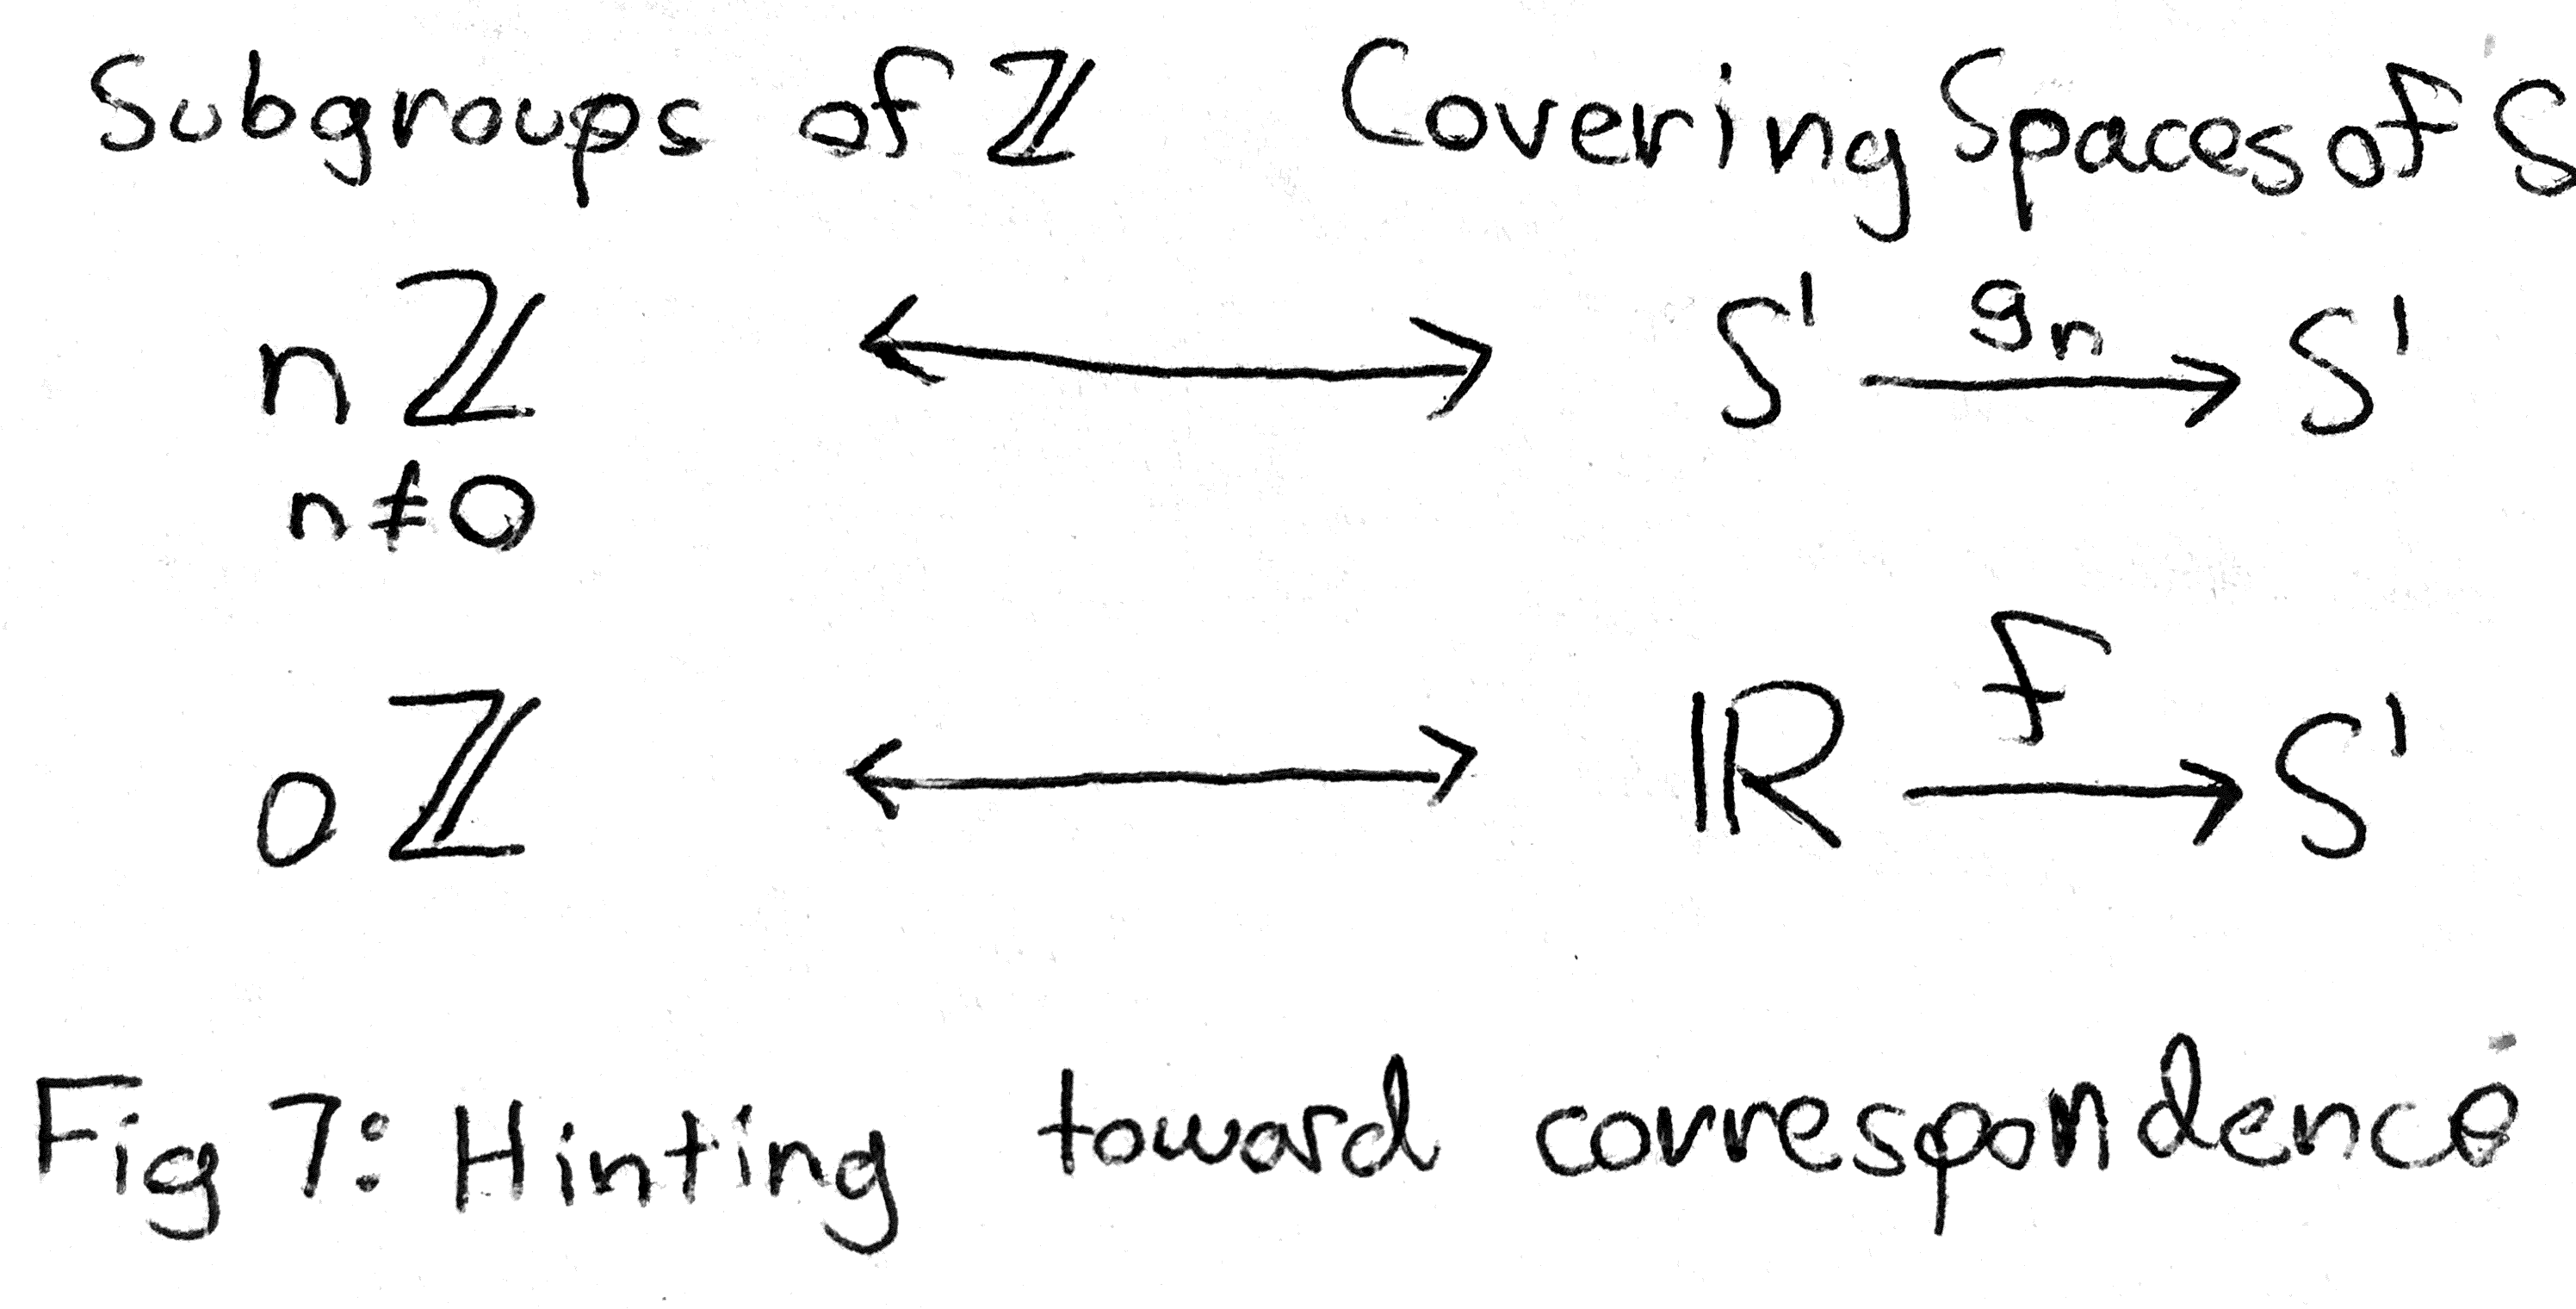 Subgroups of ℤ Covering Spaces of S
nℤ ⟷ S¹ gₙ→ S¹
n≠0
0ℤ ⟷ ℝ f→ S¹
Fig 7: Hinting toward correspondence